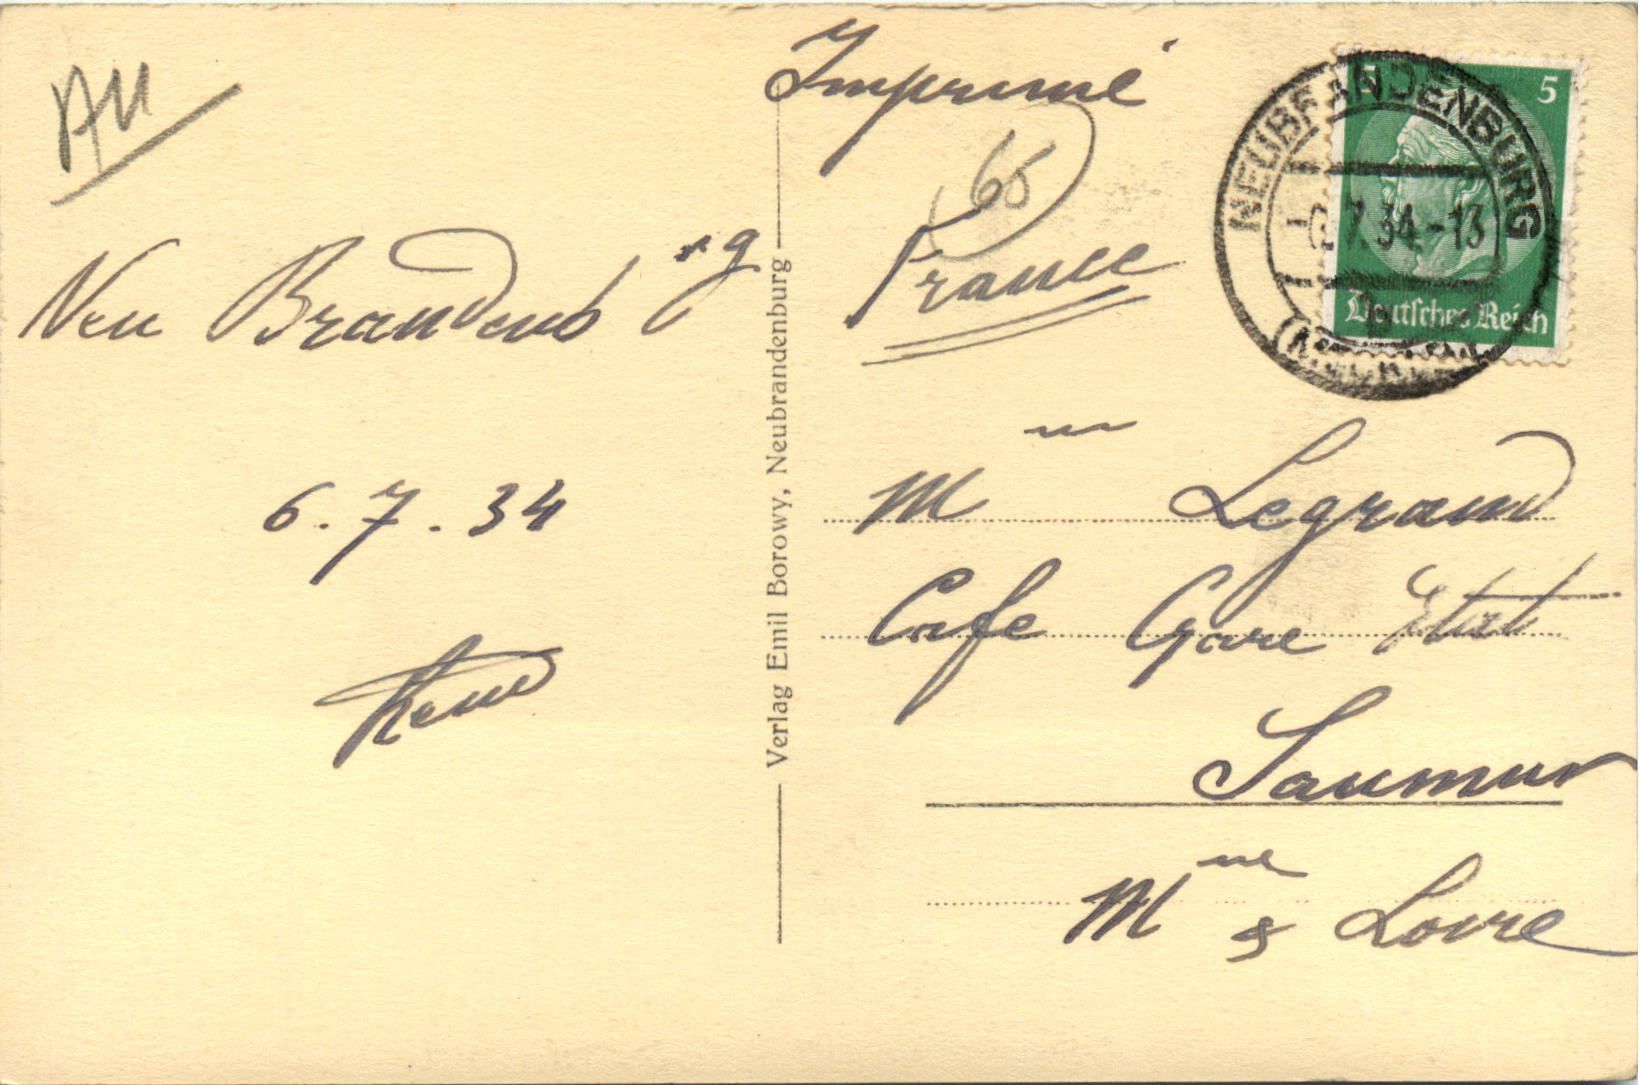 AU
Neu Brandenb^rg
6.7.34
Verlag Emil Borowy, Neubrandenburg
Imprimé
65
France
5 5
NEUBRANDENBURG
6.7.34.-13
Deutsches Reich
b
(MECKLB)
M Legrand
Cafe Gare Etat
Saumur
Mne & Loire